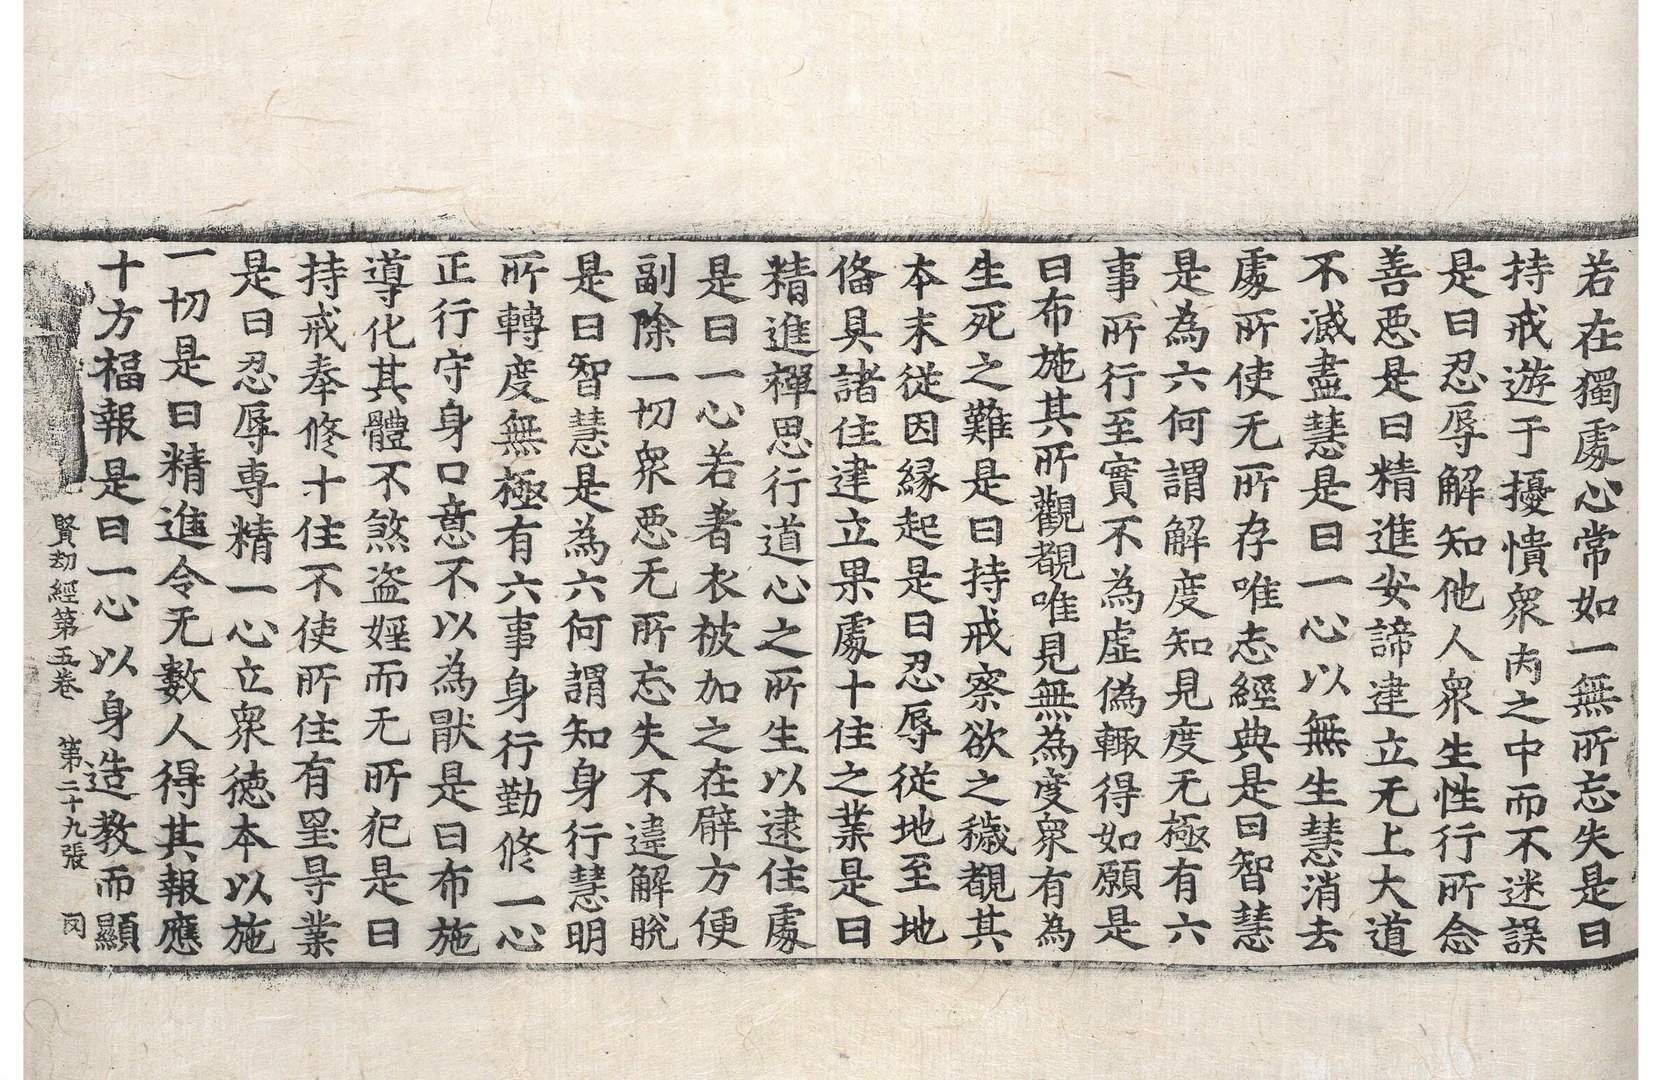 若在獨處心常如一無所忘失是曰
持戒遊于擾憒衆丙之中而不迷誤
是曰忍辱解知他人衆生性行所念
善惡是曰精進安諦建立无上大道
不滅盡慧是曰一心以無生慧消去
處所使无所存唯志經典是曰智慧
是為六何謂解度知見度无極有六
事所行至實不為虛偽輙得如願是
曰布施其所觀覩唯見無為度衆有為
生死之難是曰持戒察欲之穢覩其
本末從因緣起是曰忍辱從地至地
俻具諸住建立果處十住之業是曰
精進禪思行道心之所生以逮住處
是曰一心若著衣被加之在辟方便
副除一切衆惡无所忘失不違解脫
是曰智慧是為六何謂知身行慧明
所轉度無極有六事身行勤修一心
正行守身口意不以為猒是曰布施
導化其體不煞盜婬而无所犯是曰
持戒奉修十住不使所住有罣㝵業
是曰忍辱專精一心立衆徳本以施
一切是曰精進令无數人得其報應
十方福報是曰一心以身造教而顯
賢劫經第五卷 第二十九張 罔